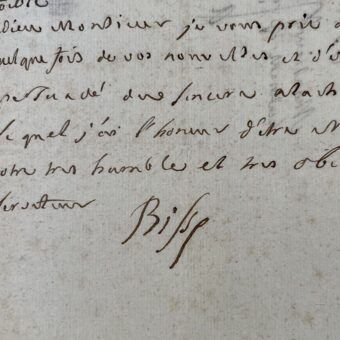 dieu Monsieur je vous prie
quelque fois de vos nouvelles et d'
persuadé du sincere attach
le quel j'ai l'honeur d'etre
votre tres humble et tres obei
serviteur
Biss